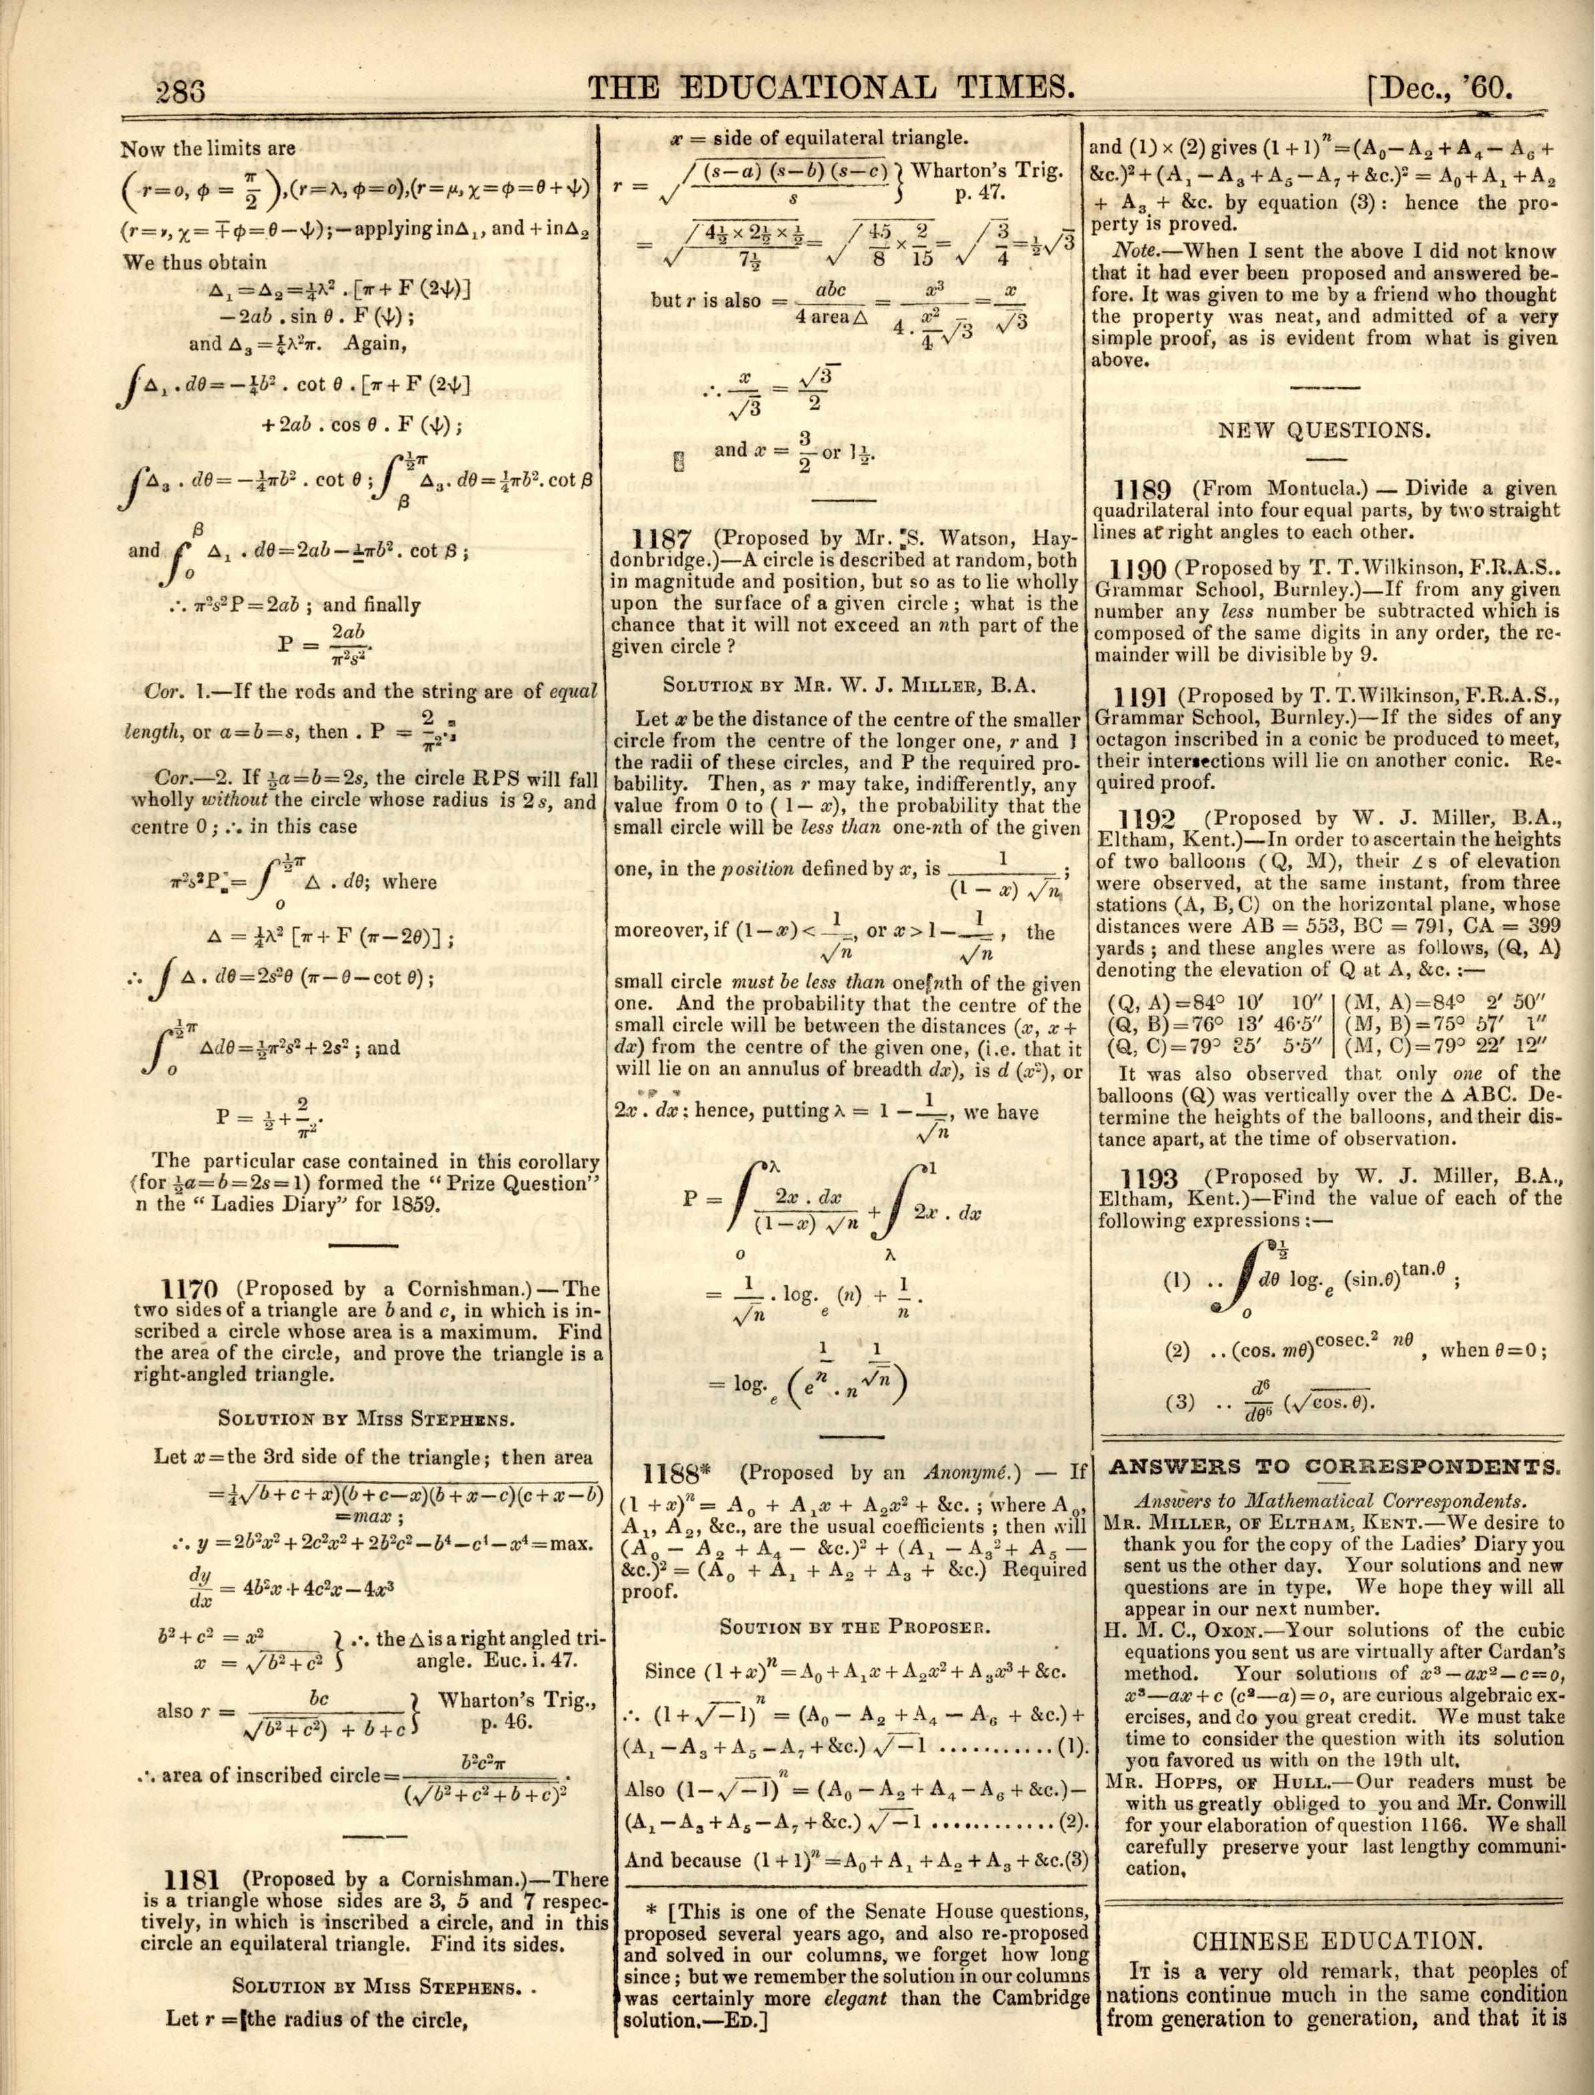 286
THE EDUCATIONAL TIMES.
[Dec., '60.
Now the limits are
(r=o, φ = π/2),(r=λ, φ=o),(r=μ, χ=φ=θ+ψ)
(r=ν, χ= ∓φ=θ−ψ);—applying in Δ₁, and + in Δ₂
We thus obtain
Δ₁=Δ₂=¼λ² . [π + F (2ψ)]
−2ab . sin θ . F (ψ) ;
and Δ₃=¼λ²π. Again,
∫Δ₁ . dθ=−¼b² . cot θ . [π + F (2ψ]
+ 2ab . cos θ . F (ψ) ;
∫Δ₃ . dθ=−¼πb² . cot θ ; ∫β^½π Δ₃. dθ=¼πb². cot β
and ∫o^β Δ₁ . dθ=2ab−¼πb². cot β ;
∴ π²s²P=2ab ; and finally
P = 2ab/π²s².
Cor. 1.—If the rods and the string are of equal
length, or a=b=s, then . P = 2/π².;
Cor.—2. If ½a=b=2s, the circle RPS will fall
wholly without the circle whose radius is 2s, and
centre O ; ∴ in this case
π²s²P = ∫o^½π Δ . dθ; where
Δ = ¼λ² [π + F (π−2θ)] ;
∴ ∫ Δ . dθ=2s²θ (π−θ−cot θ) ;
∫o^½π Δdθ=½π²s² + 2s² ; and
P = ½ + 2/π².
The particular case contained in this corollary
(for ½a=b=2s=1) formed the "Prize Question"
n the "Ladies Diary" for 1859.
1170 (Proposed by a Cornishman.)—The
two sides of a triangle are b and c, in which is in-
scribed a circle whose area is a maximum. Find
the area of the circle, and prove the triangle is a
right-angled triangle.
SOLUTION BY MISS STEPHENS.
Let x=the 3rd side of the triangle; then area
=¼√(b+c+x)(b+c−x)(b+x−c)(c+x−b)
=max ;
∴ y = 2b²x² + 2c²x² + 2b²c² − b⁴ − c⁴ − x⁴ = max.
dy/dx = 4b²x + 4c²x − 4x³
b² + c² = x² } ∴ the Δ is a right angled tri-
x = √b² + c² } angle. Euc. i. 47.
also r = bc/(√b² + c²) + b + c } Wharton's Trig.,
p. 46.
∴ area of inscribed circle = b²c²π/(√b² + c² + b + c)² .
1181 (Proposed by a Cornishman.)—There
is a triangle whose sides are 3, 5 and 7 respec-
tively, in which is inscribed a circle, and in this
circle an equilateral triangle. Find its sides.
SOLUTION BY MISS STEPHENS. .
Let r = the radius of the circle,
x = side of equilateral triangle.
r = √(s−a) (s−b) (s−c)/s } Wharton's Trig.
p. 47.
= √4½ × 2½ × ½/7½ = √45/8 × 2/15 = √3/4 = ½√3
but r is also = abc/4 area Δ = x³/4 . x²/4 √3 = x/√3
∴ x/√3 = √3/2
and x = 3/2 or 1½.
1187 (Proposed by Mr. S. Watson, Hay-
donbridge.)—A circle is described at random, both
in magnitude and position, but so as to lie wholly
upon the surface of a given circle ; what is the
chance that it will not exceed an nth part of the
given circle ?
SOLUTION BY MR. W. J. MILLER, B.A.
Let x be the distance of the centre of the smaller
circle from the centre of the longer one, r and 1
the radii of these circles, and P the required pro-
bability. Then, as r may take, indifferently, any
value from 0 to (1−x), the probability that the
small circle will be less than one-nth of the given
one, in the position defined by x, is 1/(1 − x) √n ;
moreover, if (1−x) < 1/√n, or x > 1− 1/√n , the
small circle must be less than one nth of the given
one. And the probability that the centre of the
small circle will be between the distances (x, x +
dx) from the centre of the given one, (i.e. that it
will lie on an annulus of breadth dx), is d (x²), or
2x . dx ; hence, putting λ = 1 − 1/√n, we have
P = ∫o^λ 2x . dx/(1−x) √n + ∫λ^1 2x . dx
= 1/√n . log.e (n) + 1/n .
= log.e (e^1/n . n^1/√n)
1188* (Proposed by an Anonymé.) — If
(1 + x)ⁿ = A₀ + A₁x + A₂x² + &c. ; where A₀,
A₁, A₂, &c., are the usual coefficients ; then will
(A₀ − A₂ + A₄ − &c.)² + (A₁ − A₃² + A₅ −
&c.)² = (A₀ + A₁ + A₂ + A₃ + &c.) Required
proof.
SOUTION BY THE PROPOSER.
Since (1 + x)ⁿ = A₀ + A₁x + A₂x² + A₃x³ + &c.
∴ (1 + √−1)ⁿ = (A₀ − A₂ + A₄ − A₆ + &c.) +
(A₁ − A₃ + A₅ − A₇ + &c.) √−1 ........... (1).
Also (1−√−1)ⁿ = (A₀ − A₂ + A₄ − A₆ + &c.) −
(A₁ − A₃ + A₅ − A₇ + &c.) √−1 ............ (2).
And because (1 + 1)ⁿ = A₀ + A₁ + A₂ + A₃ + &c.(3)
* [This is one of the Senate House questions,
proposed several years ago, and also re-proposed
and solved in our columns, we forget how long
since ; but we remember the solution in our columns
was certainly more elegant than the Cambridge
solution.—ED.]
and (1) × (2) gives (1 + 1)ⁿ = (A₀ − A₂ + A₄ − A₆ +
&c.)² + (A₁ − A₃ + A₅ − A₇ + &c.)² = A₀ + A₁ + A₂
+ A₃ + &c. by equation (3) : hence the pro-
perty is proved.
Note.—When I sent the above I did not know
that it had ever been proposed and answered be-
fore. It was given to me by a friend who thought
the property was neat, and admitted of a very
simple proof, as is evident from what is given
above.
NEW QUESTIONS.
1189 (From Montucla.) — Divide a given
quadrilateral into four equal parts, by two straight
lines at right angles to each other.
1190 (Proposed by T. T. Wilkinson, F.R.A.S..
Grammar School, Burnley.)—If from any given
number any less number be subtracted which is
composed of the same digits in any order, the re-
mainder will be divisible by 9.
1191 (Proposed by T. T. Wilkinson, F.R.A.S.,
Grammar School, Burnley.)—If the sides of any
octagon inscribed in a conic be produced to meet,
their intersections will lie on another conic. Re-
quired proof.
1192 (Proposed by W. J. Miller, B.A.,
Eltham, Kent.)—In order to ascertain the heights
of two balloons (Q, M), their ∠s of elevation
were observed, at the same instant, from three
stations (A, B, C) on the horizontal plane, whose
distances were AB = 553, BC = 791, CA = 399
yards ; and these angles were as follows, (Q, A)
denoting the elevation of Q at A, &c. :—
(Q, A)=84° 10′ 10″ | (M, A)=84° 2′ 50″
(Q, B)=76° 13′ 46·5″ | (M, B)=75° 57′ 1″
(Q, C)=79° 25′ 5·5″ | (M, C)=79° 22′ 12″
It was also observed that only one of the
balloons (Q) was vertically over the Δ ABC. De-
termine the heights of the balloons, and their dis-
tance apart, at the time of observation.
1193 (Proposed by W. J. Miller, B.A.,
Eltham, Kent.)—Find the value of each of the
following expressions :—
(1) .. ∫o^½ dθ log.e (sin.θ)^tan.θ ;
(2) .. (cos. mθ)^cosec.² nθ , when θ=0 ;
(3) .. d⁶/dθ⁶ (√cos. θ).
ANSWERS TO CORRESPONDENTS.
Answers to Mathematical Correspondents.
MR. MILLER, OF ELTHAM, KENT.—We desire to
thank you for the copy of the Ladies' Diary you
sent us the other day. Your solutions and new
questions are in type. We hope they will all
appear in our next number.
H. M. C., OXON.—Your solutions of the cubic
equations you sent us are virtually after Cardan's
method. Your solutions of x³−ax²−c=o,
x³—ax+c (c²—a)=o, are curious algebraic ex-
ercises, and do you great credit. We must take
time to consider the question with its solution
you favored us with on the 19th ult.
MR. HOPPS, OF HULL.—Our readers must be
with us greatly obliged to you and Mr. Conwill
for your elaboration of question 1166. We shall
carefully preserve your last lengthy communi-
cation,
CHINESE EDUCATION.
IT is a very old remark, that peoples of
nations continue much in the same condition
from generation to generation, and that it is